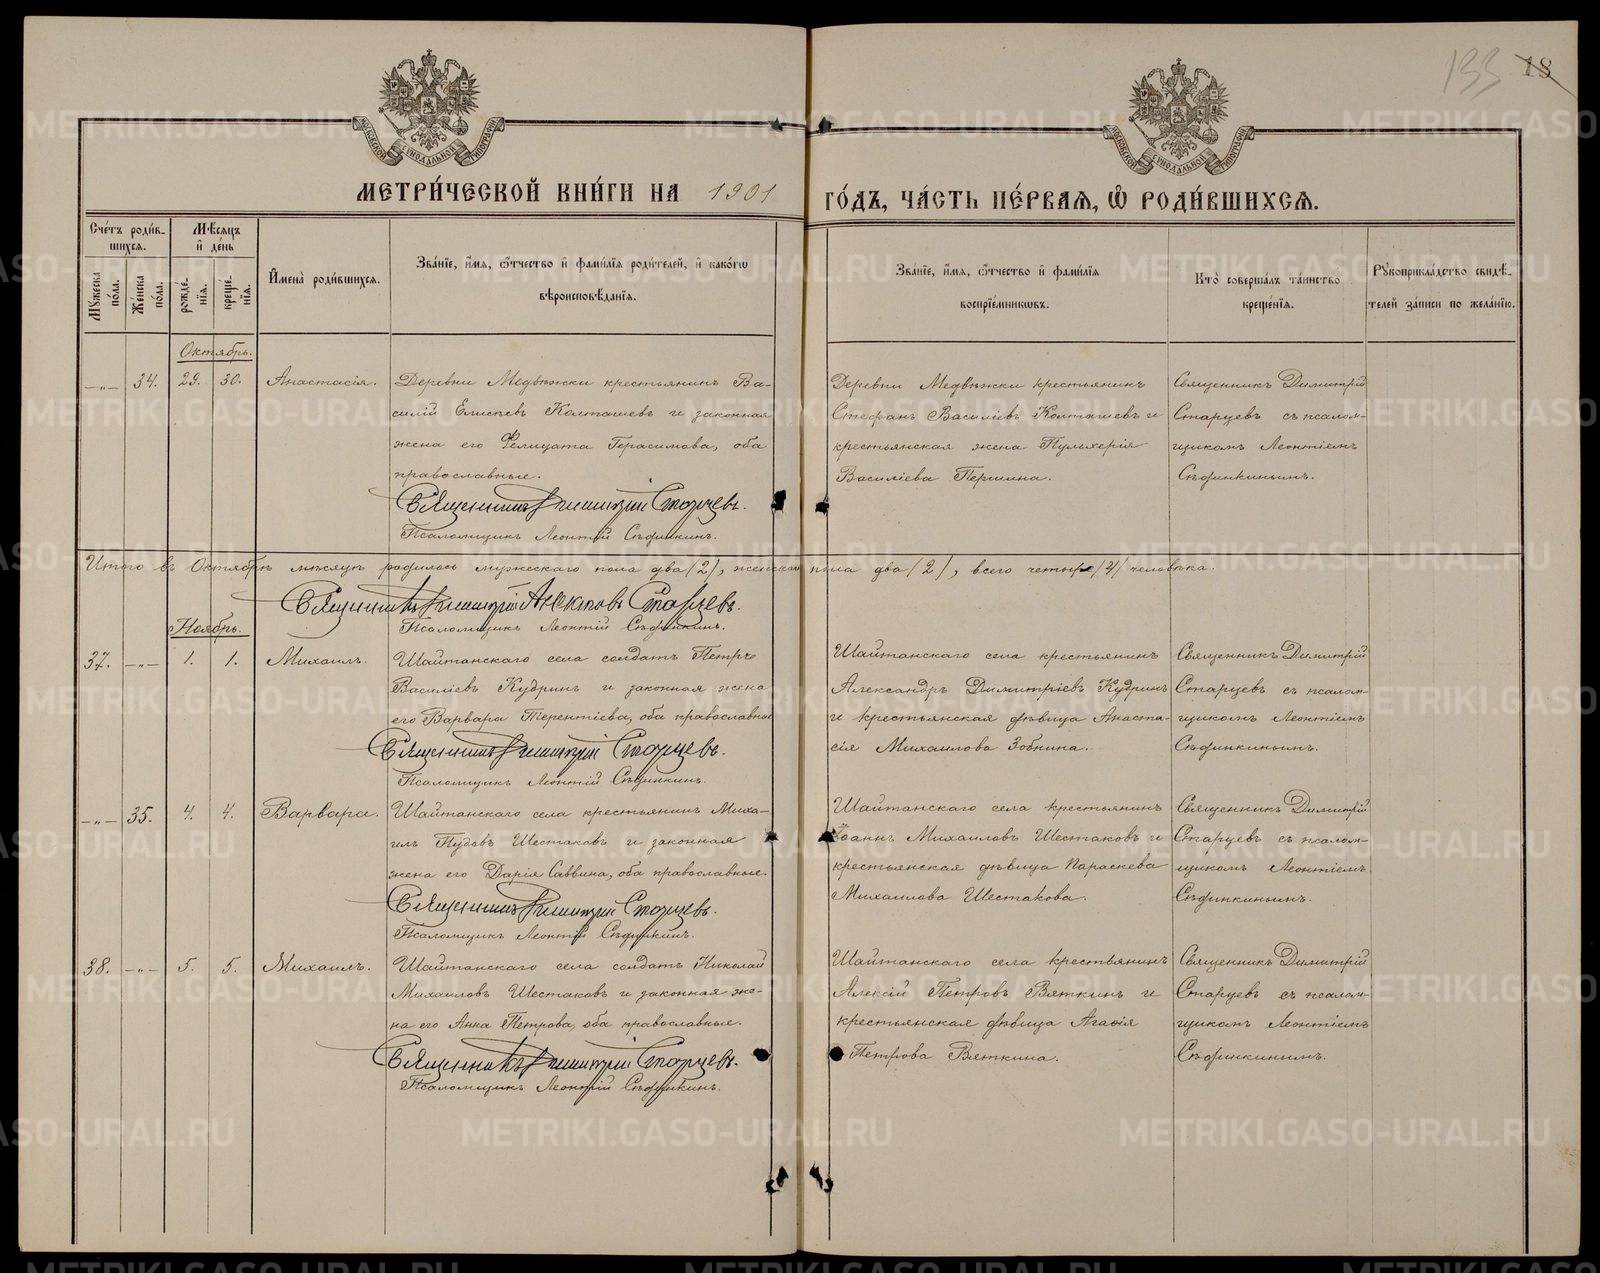 133 18
МОСКОВСКОЙ СѴНОДАЛЬНОЙ ТИПОГРАФІИ
МОСКОВСКОЙ СѴНОДАЛЬНОЙ ТИПОГРАФІИ
МЕТРИ́ЧЕСКОЙ КНИ́ГИ НА 1901 ГО́ДЪ, ЧА́СТЬ ПЕ́РВАѦ, Ѽ РОДИ́ВШИХСѦ.
Сче́тъ роди́в-
шихсѧ.
Мꙋжеска
по́ла.
Же́нска
по́ла.
Мѣ́сѧцъ
и҆ де́нь
рожде́-
нїѧ.
креще́-
нїѧ.
И҆мена̀ роди́вшихсѧ.
Зва́нїе, и҆́мѧ, ѻ҆́тчество и҆ фами́лїѧ роди́телей, и҆ како́гѡ
вѣроисповѣ́данїѧ.
Зва́нїе, и҆́мѧ, ѻ҆́тчество и҆ фами́лїѧ
воспрїе́мникѡвъ.
Кто̀ соверша́лъ та́инство
креще́нїѧ.
Рꙋкоприкла́дство свидѣ́-
телей за́писи по жела́нїю.
Октябрь.
—"— 34. 29. 30. Анастасія.
Деревни Медвѣжки крестьянинъ Ва-
силій Елисѣевъ Колташевъ и законная
жена его Фелицата Герасимова, оба
православные.
Священникъ Димитрій Старцевъ.
Псаломщикъ Леонтій Сѣдинкинъ.
Деревни Медвѣжки крестьянинъ
Стефанъ Василіевъ Колташевъ и
крестьянская жена Пульхерія
Василіева Першина.
Священникъ Димитрій
Старцевъ съ псалом-
щикомъ Леонтіемъ
Сѣдинкинымъ.
Итого въ Октябрѣ мѣсяцѣ родилось мужескаго пола два /2/, женскаго пола два /2/, всего четыре /4/ человѣка.
Священникъ Димитрій Старцевъ.
Псаломщикъ Леонтій Сѣдинкинъ.
Ноябрь.
37. —"— 1. 1. Михаилъ.
Шайтанскаго села солдатъ Петръ
Василіевъ Кудринъ и законная жена
его Варвара Терентіева, оба православные
Священникъ Димитрій Старцевъ.
Псаломщикъ Леонтій Сѣдинкинъ.
Шайтанскаго села крестьянинъ
Александръ Димитріевъ Кудринъ
и крестьянская дѣвица Анаста-
сія Михаилова Зобнина.
Священникъ Димитрій
Старцевъ съ псалом-
щикомъ Леонтіемъ
Сѣдинкинымъ.
—"— 35. 4. 4. Варвара.
Шайтанскаго села крестьянинъ Миха-
илъ Пудовъ Шестаковъ и законная
жена его Дарія Саввина, оба православные.
Священникъ Димитрій Старцевъ.
Псаломщикъ Леонтій Сѣдинкинъ.
Шайтанскаго села крестьянинъ
Іоаннъ Михаиловъ Шестаковъ и
крестьянская дѣвица Параскева
Михаилова Шестакова.
Священникъ Димитрій
Старцевъ съ псалом-
щикомъ Леонтіемъ
Сѣдинкинымъ.
38. —"— 5. 5. Михаилъ.
Шайтанскаго села солдатъ Николай
Михаиловъ Шестаковъ и законная же-
на его Анна Петрова, оба православные.
Священникъ Димитрій Старцевъ.
Псаломщикъ Леонтій Сѣдинкинъ.
Шайтанскаго села крестьянинъ
Алексій Петровъ Вяткинъ и
крестьянская дѣвица Агаѳія
Петрова Вяткина.
Священникъ Димитрій
Старцевъ съ псалом-
щикомъ Леонтіемъ
Сѣдинкинымъ.
METRIKI.GASO-URAL.RU